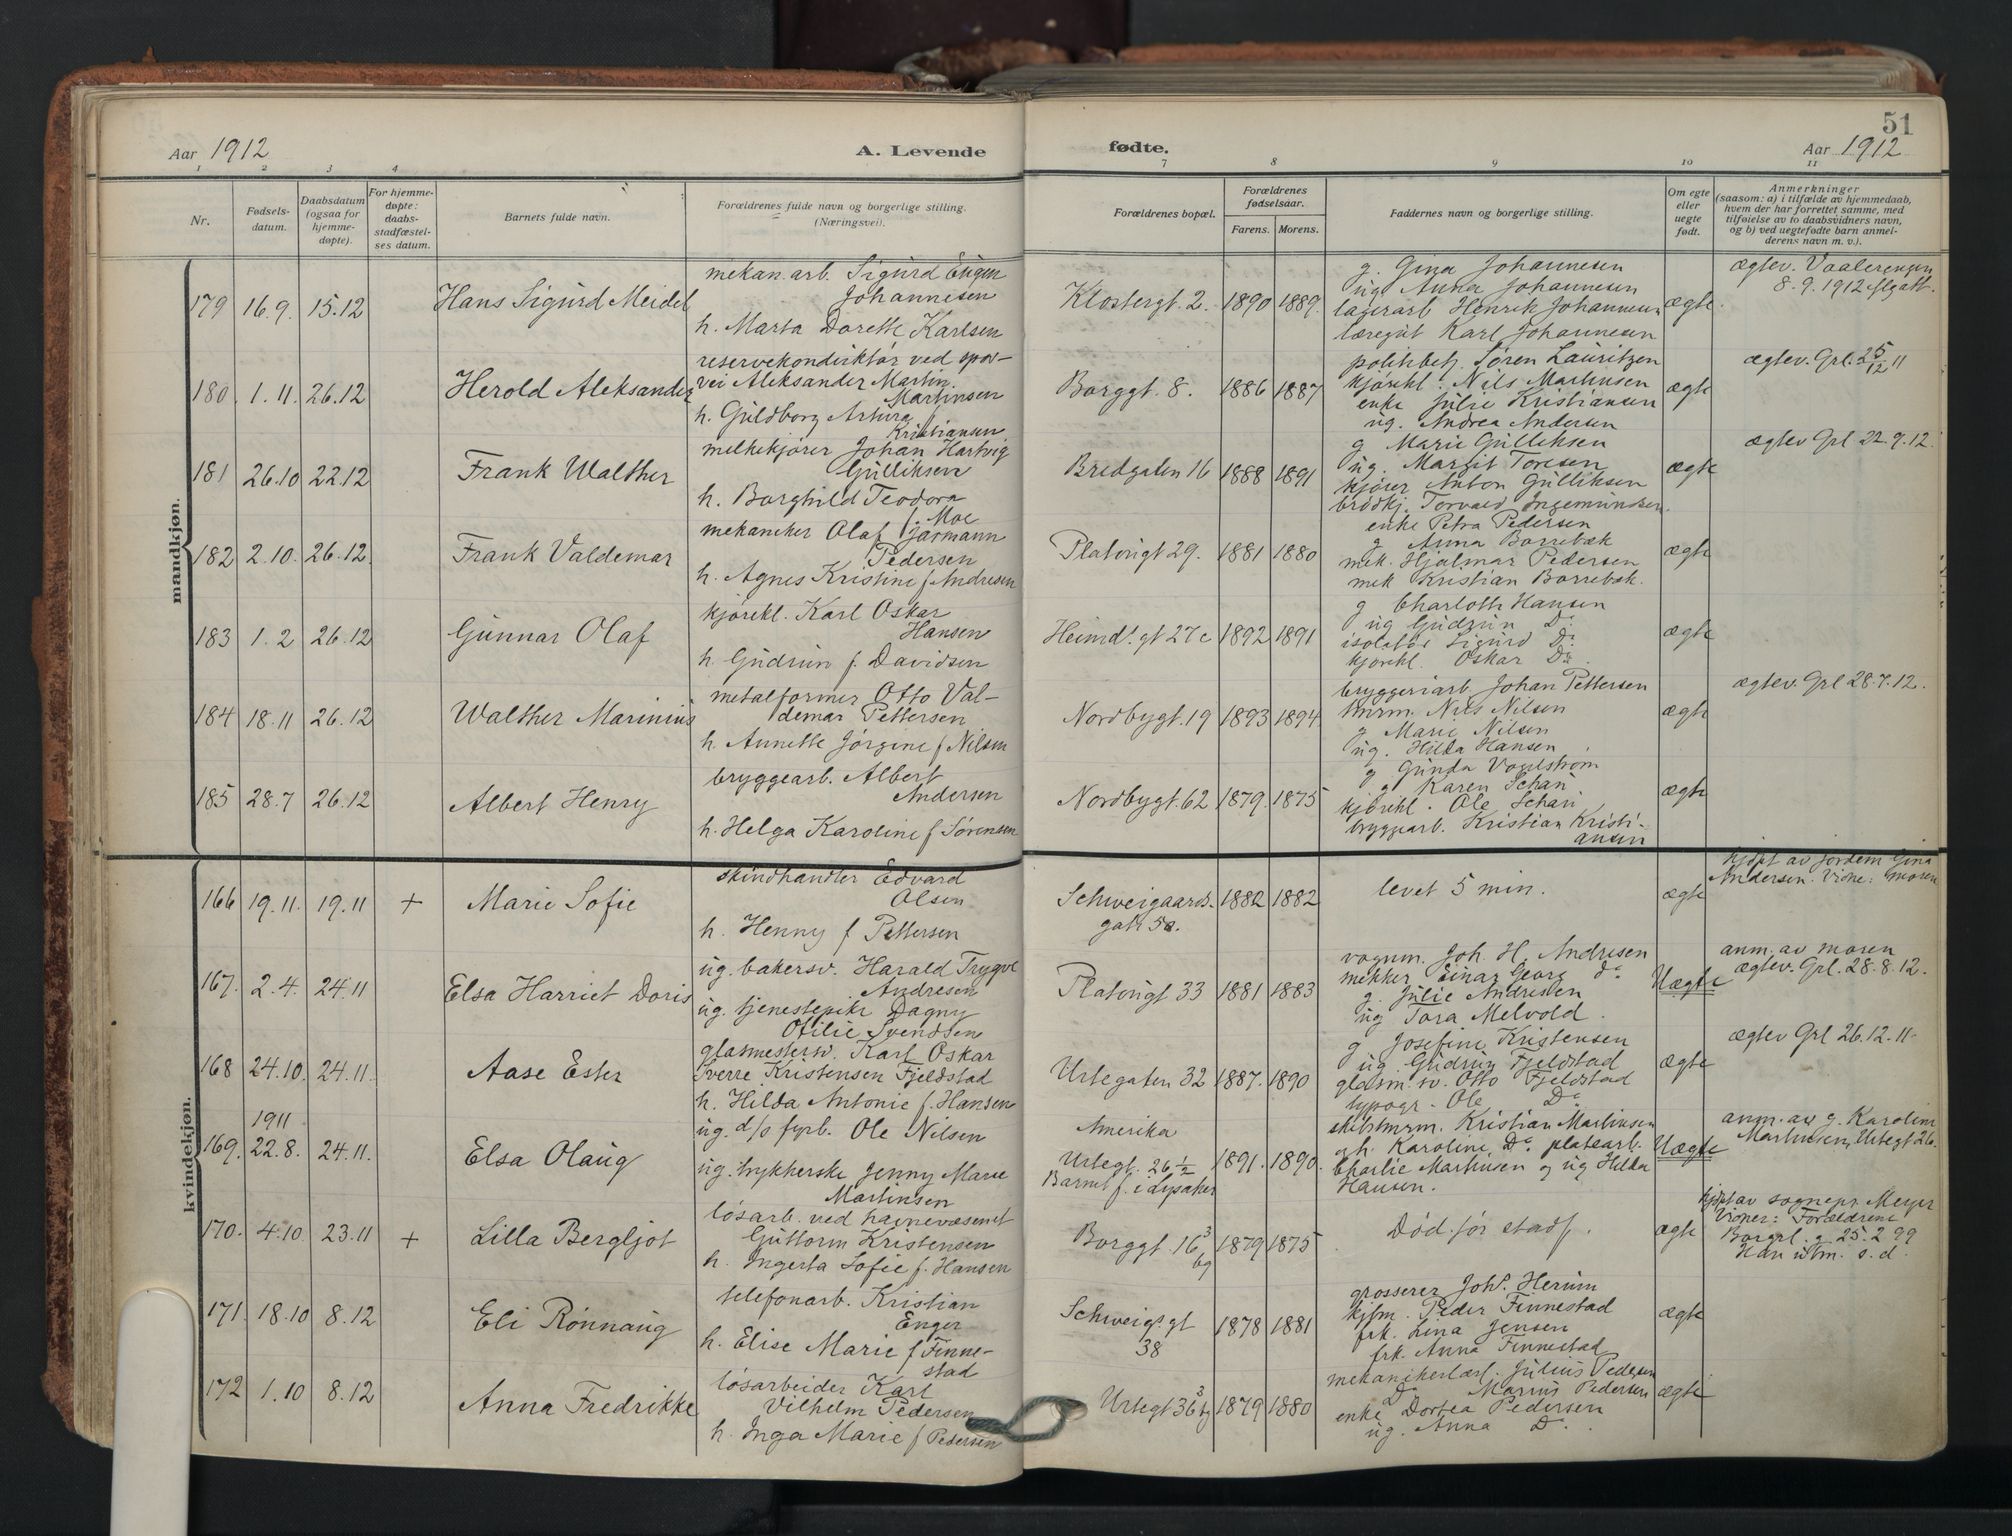 51
Aar 1912
A. Levende
fødte.
Aar 1912
1 2 3 4
7 8 9 10 11
Nr.
Fødsels-
datum.
Daabsdatum
(ogsaa for
hjemme-
døpte).
For hjemme-
døpte:
daabs-
stadfæstel-
ses datum.
Barnets fulde navn.
Forældrenes fulde navn og borgerlige stilling.
(Næringsvei).
Forældrenes bopæl.
Forældrenes
fødselsaar.
Farens. Morens.
Faddernes navn og borgerlige stilling.
Om egte
eller
uegte
født.
Anmerkninger
(saasom: a) i tilfælde av hjemmedaab,
hvem der har forrettet samme, med
tilføielse av to daabsvidners navn,
og b) ved uegtefødte barn anmel-
derens navn m. v.).
mandkjøn.
179 16.9. 15.12
Hans Sigurd Meidel
mekan. arb. Sigurd Eugen
Johannesen
h. Marta Dorette Karlsen
Klostergt. 2. 1890 1889.
g. Gina Johannesen
ug. Anna Johannesen
lagerarb Henrik Johannesen
læregut Karl Johannesen
ægte
ægtev. Vaalerengen
8.9.1912
180. 1.11. 26.12
Herold Aleksander
reservekonduktør ved spor-
vei Aleksander Martin
Martinsen
h. Guldborg Artura f.
Kristiansen
Borggt. 8. 1886 1887
politibetj. Søren Lauritzen
kjørekl. Nils Martinsen
enke Julie Kristiansen
ug. Andrea Andersen
ægte
ægtev. Grl. 25/12 11
181 26.10 22.12
Frank Walther
melkekjører Johan Hartvig
Gulliksen
h. Borghild Teodora
f. Moe
Bredgaten 16 1888 1891
g Marie Gulliksen
ug. Margit Toresen
kjører Anton Gulliksen
brødkj. Torvald Ingemundsen.
ægte
ægtev Grl 22.9.12.
182 2.10. 26.12.
Frank Valdemar
mekaniker Olaf Garmann
Pedersen
h. Agnes Kristine f. Andresen
Platougt 29. 1881 1880
enke Petra Pedersen
g Anna Borrebæk
mek. Hjalmar Pedersen
mek Kristian Borrebæk.
ægte
183 1.2 26.12
Gunnar Olaf
kjørekl. Karl Oskar
Hansen
h. Gudrun f. Davidsen
Heimd. gt 27c 1892 1891
g Charloth Hansen
ug Gudrun Do
isolatør Sigurd Do
kjørekl. Oskar Do.
ægte
184 18.11 26.12
Walther Marinius
metalformer Otto Val-
demar Pettersen
h. Annette Jørgine f Nilsen
Nordbygt. 19 1893 1894
bryggeriarb. Johan Pettersen
Nils Nilsen
g Marie Nilsen
ug. Hilda Hansen
ægte
ægtev. Grl 28.7.12.
185 28.7 26.12
Albert Henry
bryggearb. Albert
Andersen
h. Helga Karoline f Sørensen
Nordbygt. 62 1879. 1875
g Gunda
g Karen Schau
kjørekl. Ole Schau
bryggearb. Kristian Kristi-
ansen
ægte
kvindekjøn.
166 19.11. 19.11 +
Marie Sofie
skindhandler Edvard
Olsen
h. Henny f Pettersen
Schweigaards-
gate 5a. 1882 1882
levet 5 min.
ægte
hjdpt av jordem Gina
Andersen. Vidne: moren
167. 2.4. 24.11
Elsa Harriet Doris
ug. bakersv. Harald Trygve
Andresen
ug. tjenestepike Dagny
Otilie Svendsen
Platougt 33 1881 1883
vognm. Joh. H. Andresen
mekker Einar Georg Do
g. Julie Andresen
ug Tora Melvold.
Uægte
anm. av moren
ægtev. Grl. 28.8.12.
168 24.10. 24.11.
Aase Ester
glasmestersv. Karl Oskar
Sverre Kristensen Fjeldstad
h. Hilda Antonie f. Hansen
Urtegaten 32 1887. 1890
g Josefine Kristensen
ug. Gudrun Fjeldstad
glasm. sv. Otto Fjeldstad
typogr. Ole Do
ægte
ægtev Grl 26.12.11.
1911
169. 22.8. 24.11.
Elsa Olaug
ug. d/s fyrb. Ole Nilsen
ug. trykkerske Jenny Marie
Martinsen
Amerika
Urtegt. 26 1/2
Barnet f. i Lysaker 1891. 1890.
Kristian Martinsen
og h. Karoline Do. platearb.
Charlie Martinsen og ug Hilda
Hansen.
Uægte
anm. av g. Karoline
Martinsen, Urtegt 26.
170. 4.10 23.11 +
Lilla Bergljot
løsarb. ved havnevæsenet
Guttorm Kristensen
h. Ingerta Sofie f. Hansen
Borggt. 16 3/bg 1879 1875
Død før stadf.
ægte
hjdpt av sognepr. Meyer
Vidner: Forældrene
Borgerl. g. 25.2.99
Han utm. s.d.
171. 18.10 8.12
Eli Rønnaug
telefonarb. Kristian
Enger
h. Elise Marie f Finne-
stad
Schweigs. gt
38 1878 1881
grosserer Johs. Herum
kjfm. Peder Finnestad
frk. Lina Jensen
frk. Anna Finnestad
ægte
172 1.10 8.12
Anna Fredrikke
løsarbeider Karl
Vilhelm Pedersen
h. Inga Marie f Pedersen
Urtegt 36 3/bg 1879 1880
mekanikerlærl. Julius Pedersen
Do Marius Pedersen
enke Dortea Pedersen
ug. Anna Do.
ægte